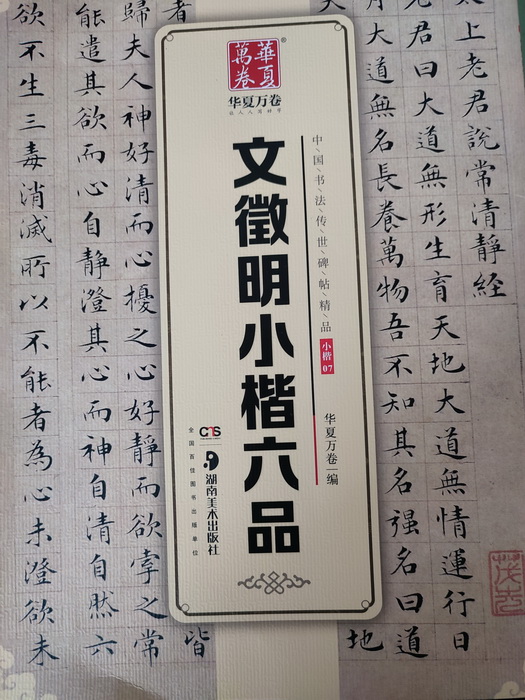 太上老君說常清靜經
老君曰大道無形生育天地大道無情運行日
月大道無名長養萬物吾不知其名強名曰道
地
華夏萬卷®
华夏万卷
让人人写好字
中国书法传世碑帖精品
小楷07
华夏万卷 编
文徵明小楷六品
CTS
湖南美术出版社
全国百佳图书出版单位
者
皆
歸夫人神好清而心擾之心好靜而欲牽之常
能遣其欲而心自靜澄其心而神自清自然六
欲不生三毒消滅所以不能者為心未澄欲未